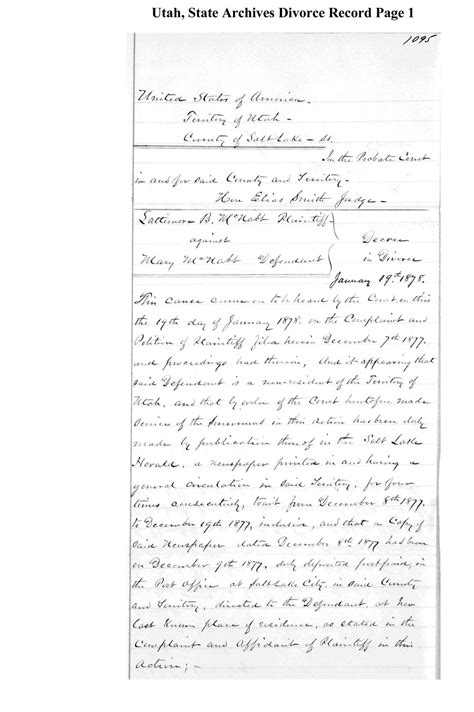 Utah, State Archives Divorce Record Page 1
1095
United States of America -
Territory of Utah -
County of Salt Lake - ss.
In the Probate Court
in and for said County and Territory -
Hon Elias Smith Judge -
Lattimore B. McNabb Plaintiff
against
Mary McNabb Defendant
Decree
in Divorce
January 19th 1878.
This cause came on to be heard by the Court on this
the 19th day of January 1878. on the Complaint and
Petition of Plaintiff filed herein December 7th 1877.
and proceedings had therein, And it appearing that
said Defendant is a non-resident of the Territory of
Utah, and that by order of the Court heretofore made
service of the Summons in this action has been duly
made by publication thereof in the Salt Lake
Herald, a newspaper printed in and having a
general circulation in said Territory, for four
times consecutively, to wit from December 8th 1877.
to December 19th 1877, inclusive, and that a Copy of
said Newspaper dated December 8th 1877 had been
on December 9th 1877, duly deposited postpaid, in
the Post Office at Salt Lake City, in said County
and Territory, directed to the Defendant, at her
last known place of residence, as stated in the
Complaint and Affidavit of Plaintiff in this
Action; -